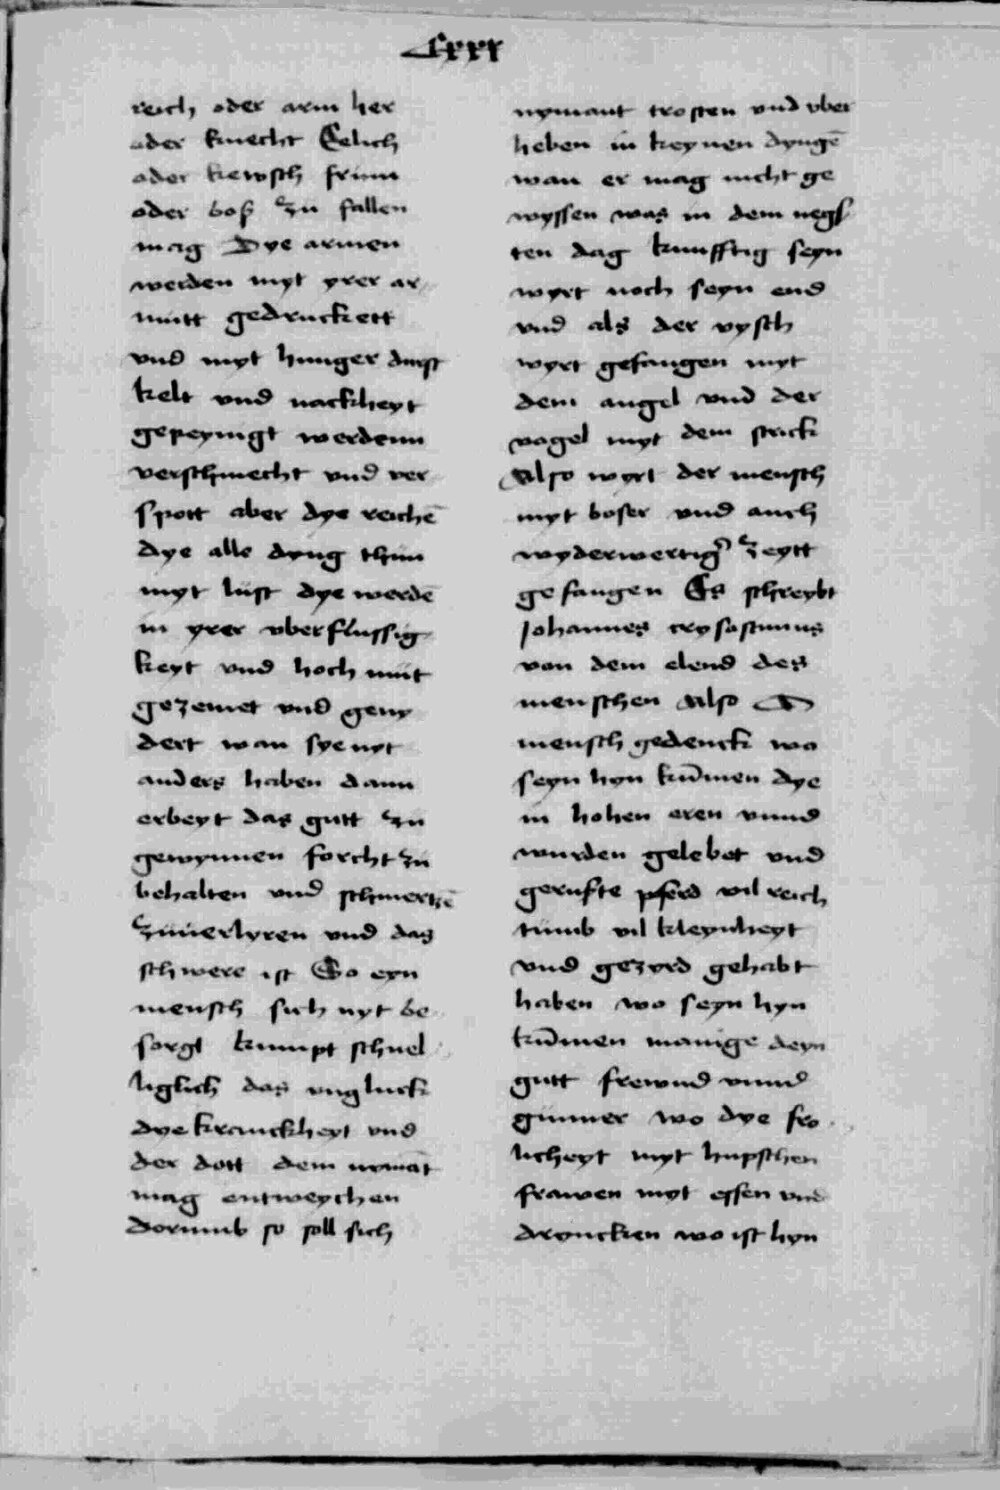 Lxxx
reich oder arm her
oder knecht Eelich
oder kewsch frum
oder boß zu fallen
mag Dye armen
werden myt yrer ar
mutt gedruckett
vnd myt hunger durst
kelt vnd nackheyt
gepeynigt werdenn
verschmecht vnd ver
spott aber dye reichē
dye alle dyng thun
myt lust dye werdē
in yrer vberflussig
keyt vnd hoch mut
gezemet vnd geny
dert wan sye nyt
anders haben dann
erbeyt das gutt zu
gewynnen forcht zu
behalten vnd schmertzē
zuuerlyren vnd das
schwere ist So eyn
mensch sich nyt be
sorgt kumpt schnel
liglich das vngluck
dye kranckheyt vnd
der dott dem nymāt
mag entweychen
dorumb so soll sich
nymant trosten vnd vber
heben in keynen dyngē
wan er mag nicht ge
wyssen was in dem negs
ten dag kunfftig seyn
wyrt noch seyn end
vnd als der vysch
wyrt gefangen myt
dem angel vnd der
vogel myt dem strick
Also wyrt der mensch
myt boser vnd auch
wyderwertig' zeytt
gefangen Es schreybt
Johannes crysostimus
von dem elend des
menschen Also O
mensch gedenck wo
seyn hyn kūmen dye
in hohen eren vnnd
wurden gelebet vnd
gerufte pferd vil reich
tumb vil kleynheyt
vnd gezyrd gehabt
haben wo seyn hyn
kūmen manige deyn
gutt frewnd vnnd
gunner wo dye fro
licheyt myt hupschen
frawen myt essen vnd
dryncken wo ist hyn